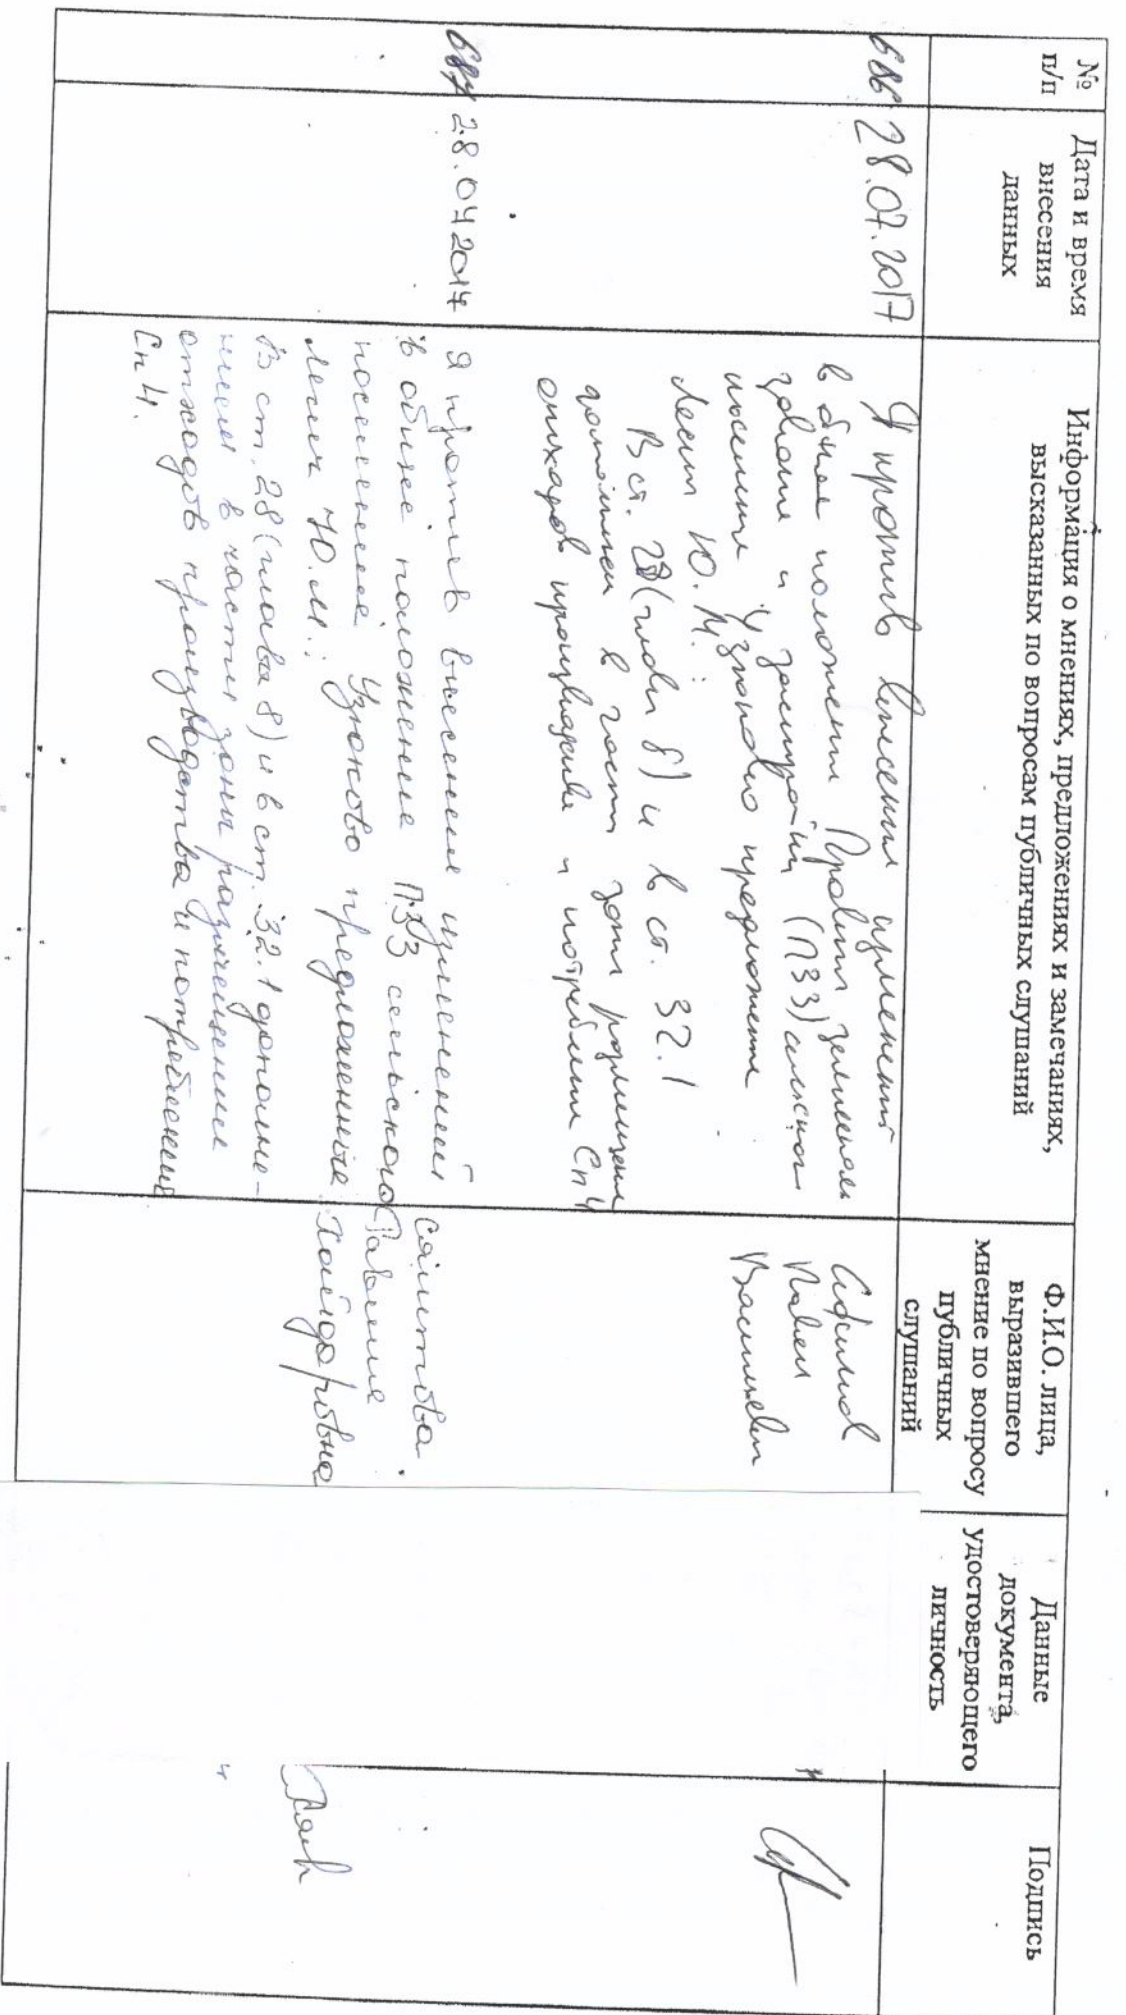 № п/п
Дата и время внесения данных
Информация о мнениях, предложениях и замечаниях, высказанных по вопросам публичных слушаний
Ф.И.О. лица, выразившего мнение по вопросу публичных слушаний
Данные документа, удостоверяющего личность
Подпись
686
28.07.2017
Я против внесения изменений
в общая положении Правил землеполь
зования и застройки (ПЗЗ) сельского
поселение Узюково предложенные
Леент Ю.М.:
В ст. 28 (глава 8) и в ст. 32.1
дополнении в части зоны размещения
отходов производства и потребления Сп4
Павел
Васильевич
687
28.07.2017
Я против внесения изменений
в общие положение ПЗЗ сельского
поселенеее Узюково предложенные
Ю.М.:
В ст. 28 (глава 8) и в ст. 32.1 дополне-
нии в части зоны размещение
отходов производства и потребление
Сп4.
Саитова